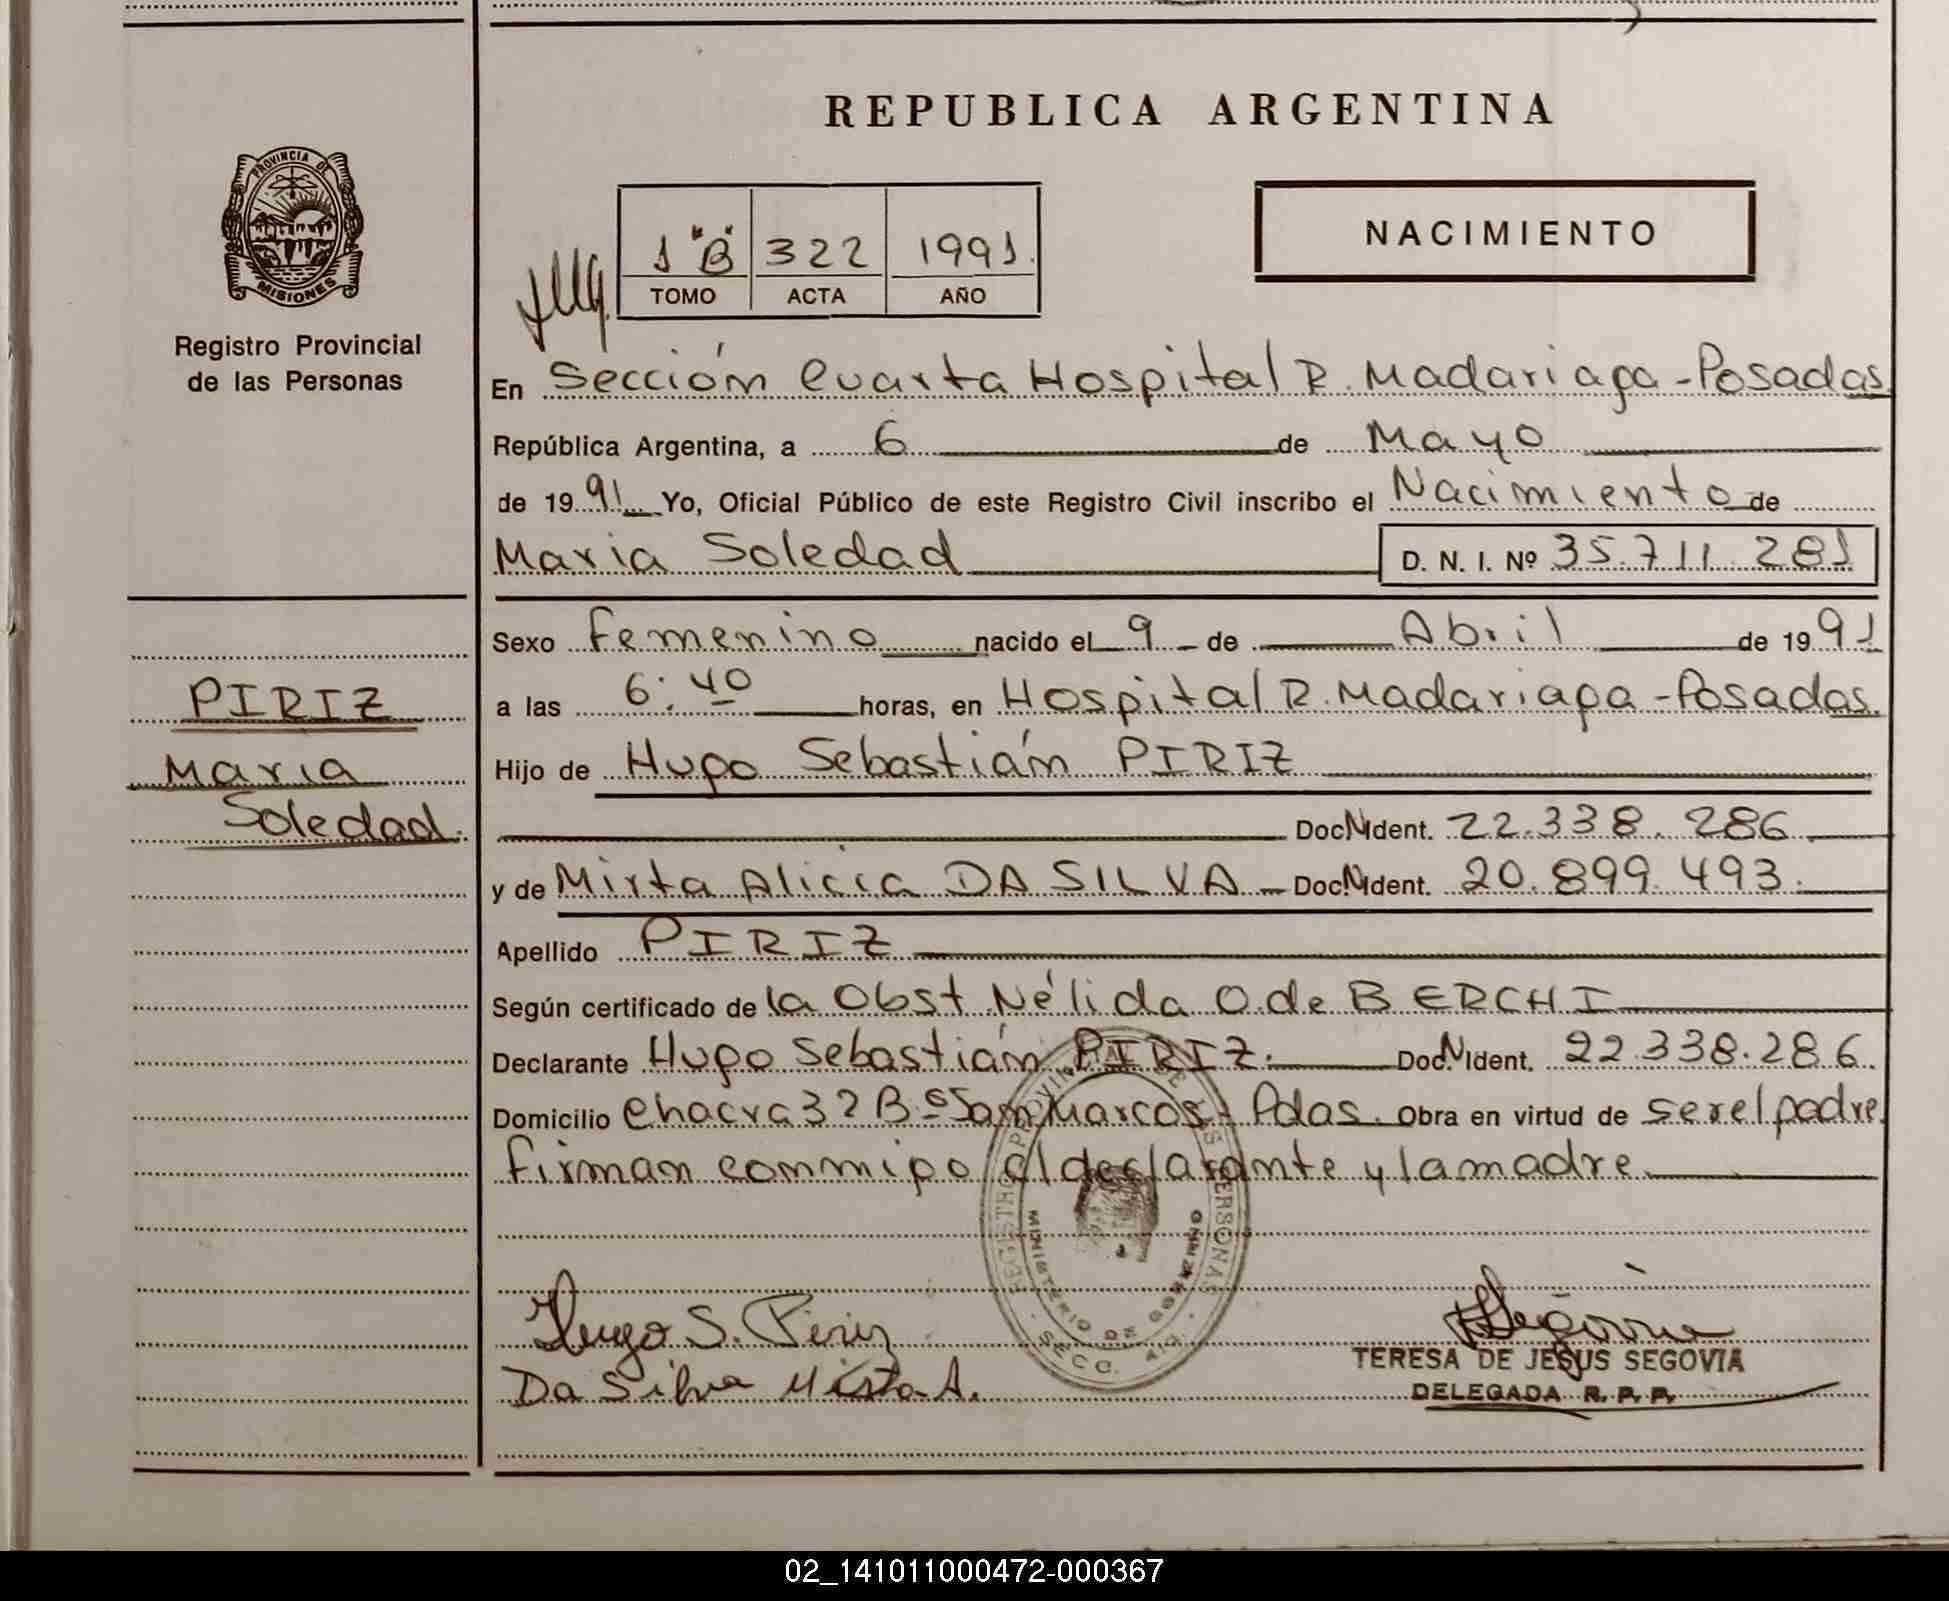 REPUBLICA ARGENTINA
PROVINCIA DE
MISIONES
Registro Provincial
de las Personas
1 "B" 322 1991.
TOMO ACTA AÑO
NACIMIENTO
En Sección Cuarta Hospital R. Madariaga - Posadas
República Argentina, a 6 de Mayo
de 1991 Yo, Oficial Público de este Registro Civil inscribo el Nacimiento de
Maria Soledad D. N. I. Nº 35.711.281
Sexo femenino nacido el 9 de Abril de 1991
a las 6:40 horas, en Hospital R. Madariaga - Posadas.
Hijo de Hugo Sebastián PIRIZ
Doc. N. Ident. 22.338.286
y de Mirta Alicia DA SILVA Doc. N. Ident. 20.899.493.
Apellido PIRIZ
Según certificado de la Obst. Nélida O. de BERCHI
Declarante Hugo Sebastián PIRIZ. Doc. N. Ident. 22.338.286.
Domicilio Chacra 32 Bº San Marcos - Pdas. Obra en virtud de ser el padre
firman conmigo el declarante y la madre.
PIRIZ
Maria
Soledad.
REGISTRO PROVINCIAL DE LAS PERSONAS
MINISTERIO DE GOBIERNO
SECC. 4ª
Hugo S. Piriz
Da Silva Mirta A.
TERESA DE JESUS SEGOVIA
DELEGADA R. P. P.
02_141011000472-000367